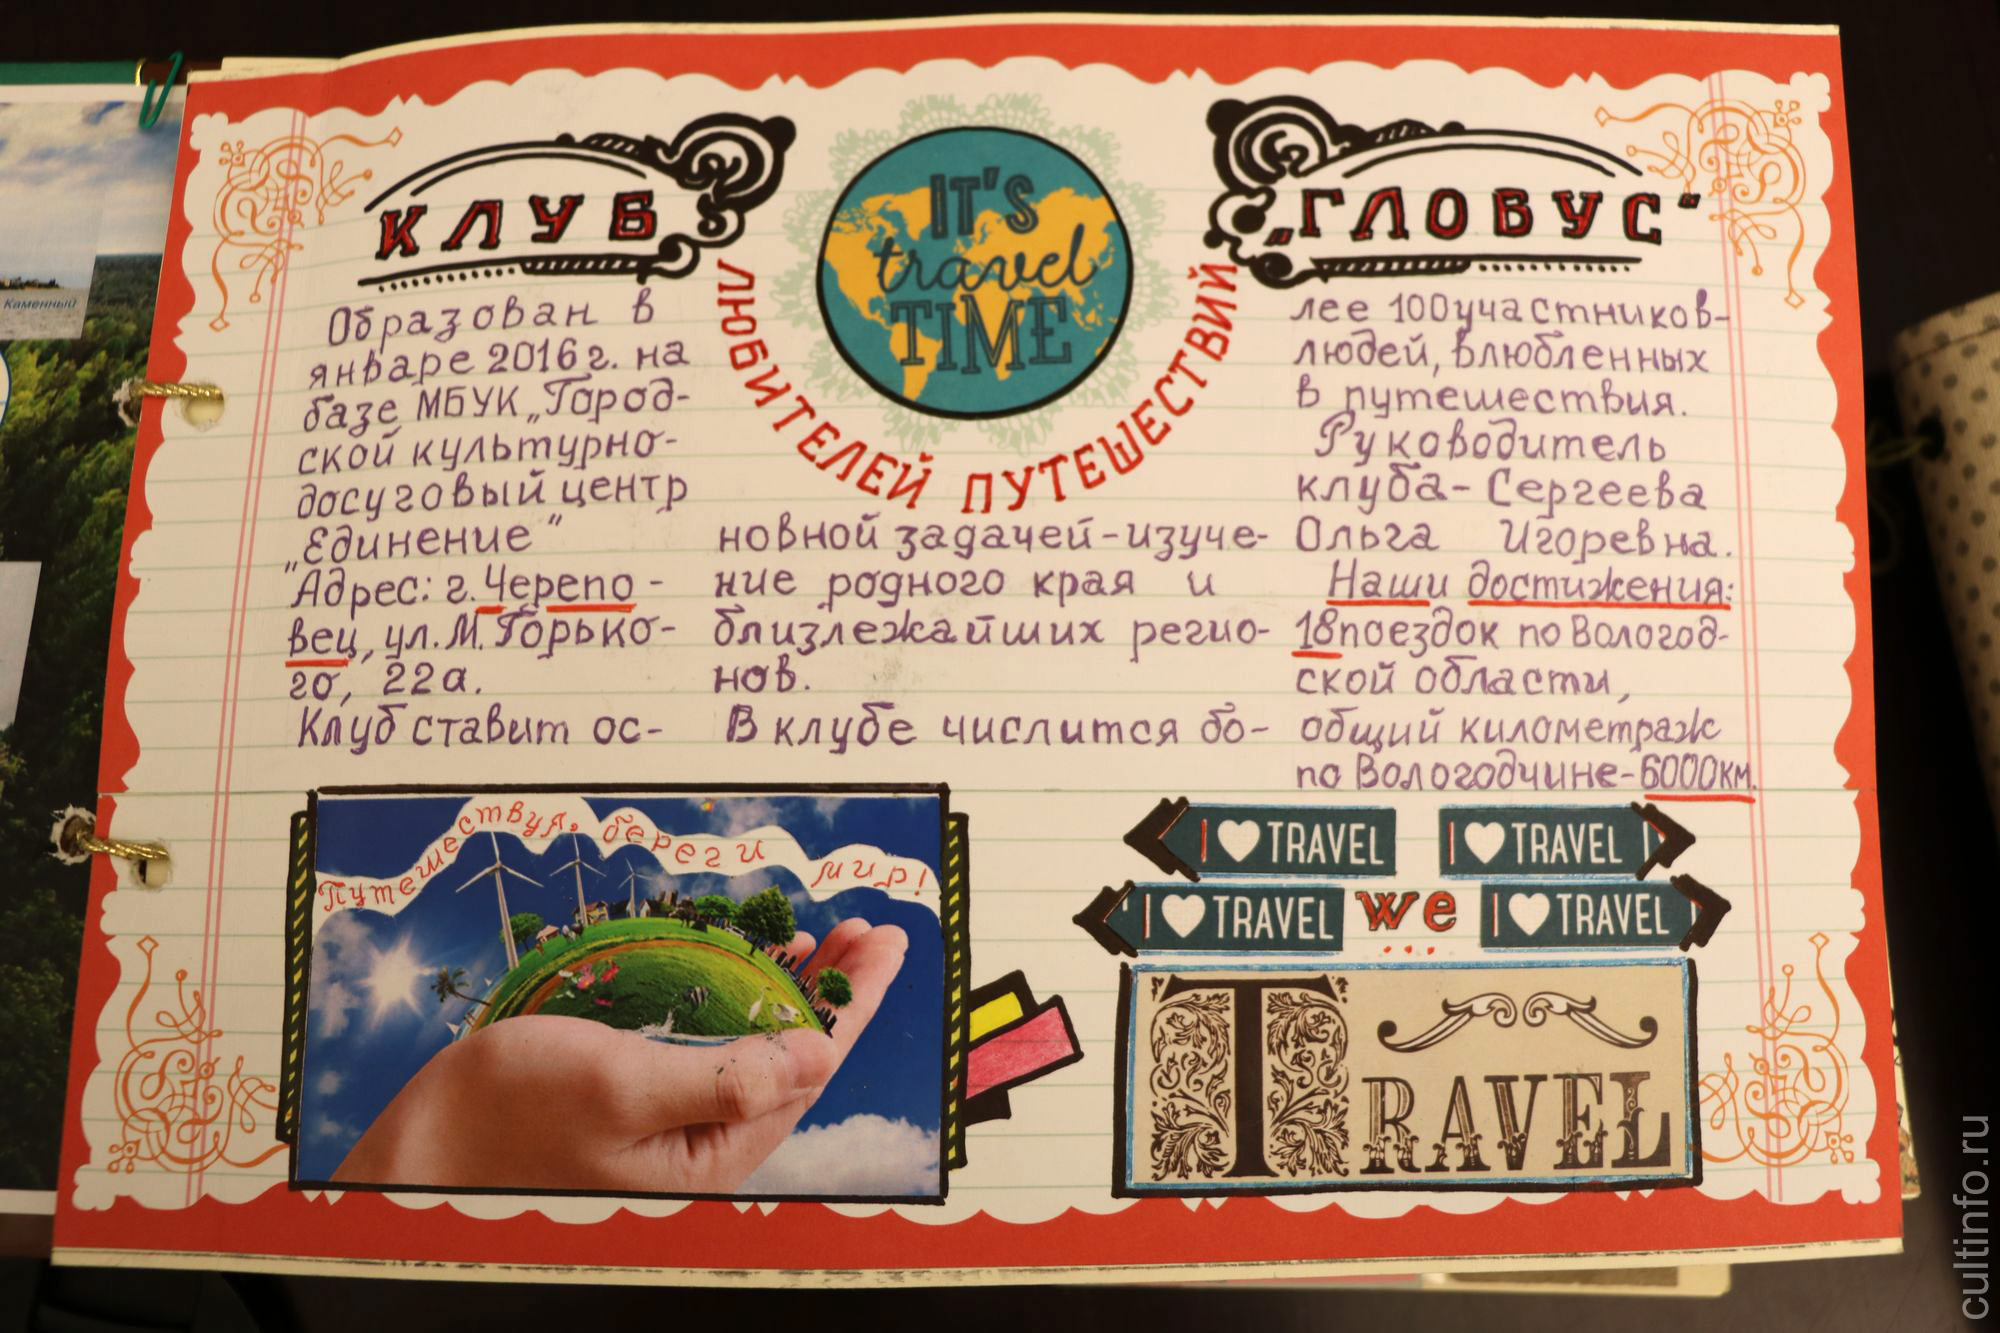 Каменный
КЛУБ
IT'S
travel
TIME
„ГЛОБУС"
ЛЮБИТЕЛЕЙ ПУТЕШЕСТВИЙ
Образован в
январе 2016 г. на
базе МБУК „Город-
ской культурно-
досуговый центр
„Единение"
Адрес: г. Черепо-
вец, ул. М. Горько-
го, 22а.
Клуб ставит ос-
новной задачей - изуче-
ние родного края и
близлежайших регио-
нов.
В клубе числится бо-
лее 100 участников-
людей, влюбленных
в путешествия.
Руководитель
клуба - Сергеева
Ольга Игоревна.
Наши достижения:
18 поездок по Вологод-
ской области,
общий километраж
по Вологодчине - 6000 км.
Путешествуя, береги мир!
I ♥ TRAVEL
I ♥ TRAVEL
I ♥ TRAVEL
we
I ♥ TRAVEL
TRAVEL
cultinfo.ru